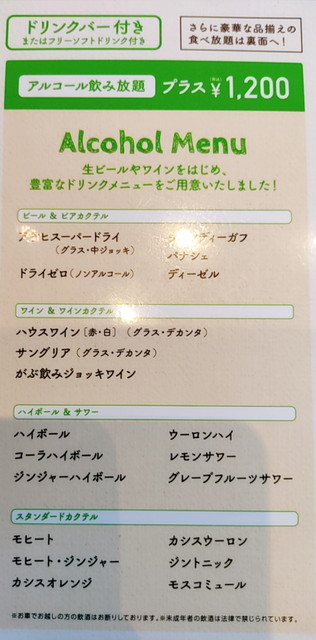 ドリンクバー付き
またはフリーソフトドリンク付き
さらに豪華な品揃えの
食べ放題は裏面へ!
アルコール飲み放題 プラス ¥1,200
Alcohol Menu
生ビールやワインをはじめ、
豊富なドリンクメニューをご用意いたしました!
ビール & ビアカクテル
スーパードライ ディーガフ
(グラス・中ジョッキ) パナシェ
ドライゼロ(ノンアルコール) ディーゼル
ワイン & ワインカクテル
ハウスワイン[赤・白] (グラス・デカンタ)
サングリア (グラス・デカンタ)
がぶ飲みジョッキワイン
ハイボール & サワー
ハイボール ウーロンハイ
コーラハイボール レモンサワー
ジンジャーハイボール グレープフルーツサワー
スタンダードカクテル
モヒート カシスウーロン
モヒート・ジンジャー ジントニック
カシスオレンジ モスコミュール
※お車でお越しの方の飲酒はお断りしております。※未成年者の飲酒は法律で禁じられています。